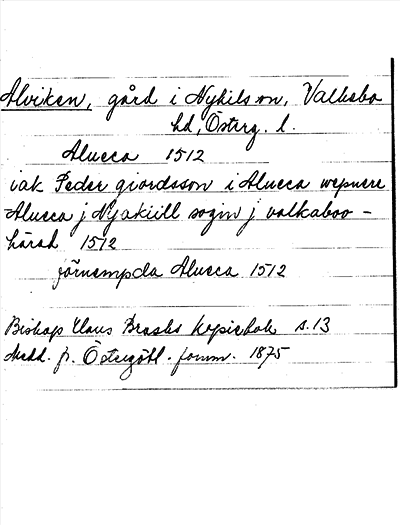 Alviken, gård i Nykils sn, Valkebo
hd, Österg. l.
Alueca 1512
iak Peder giordsson i Alueca wepnere
Alueca j Nyakiill sogn j valkaboo -
häradh 1512
förnempda Alueca 1512
Biskop Hans Brasks kopiebok s. 13
Medd. fr. Östergötl. fornm. 1875